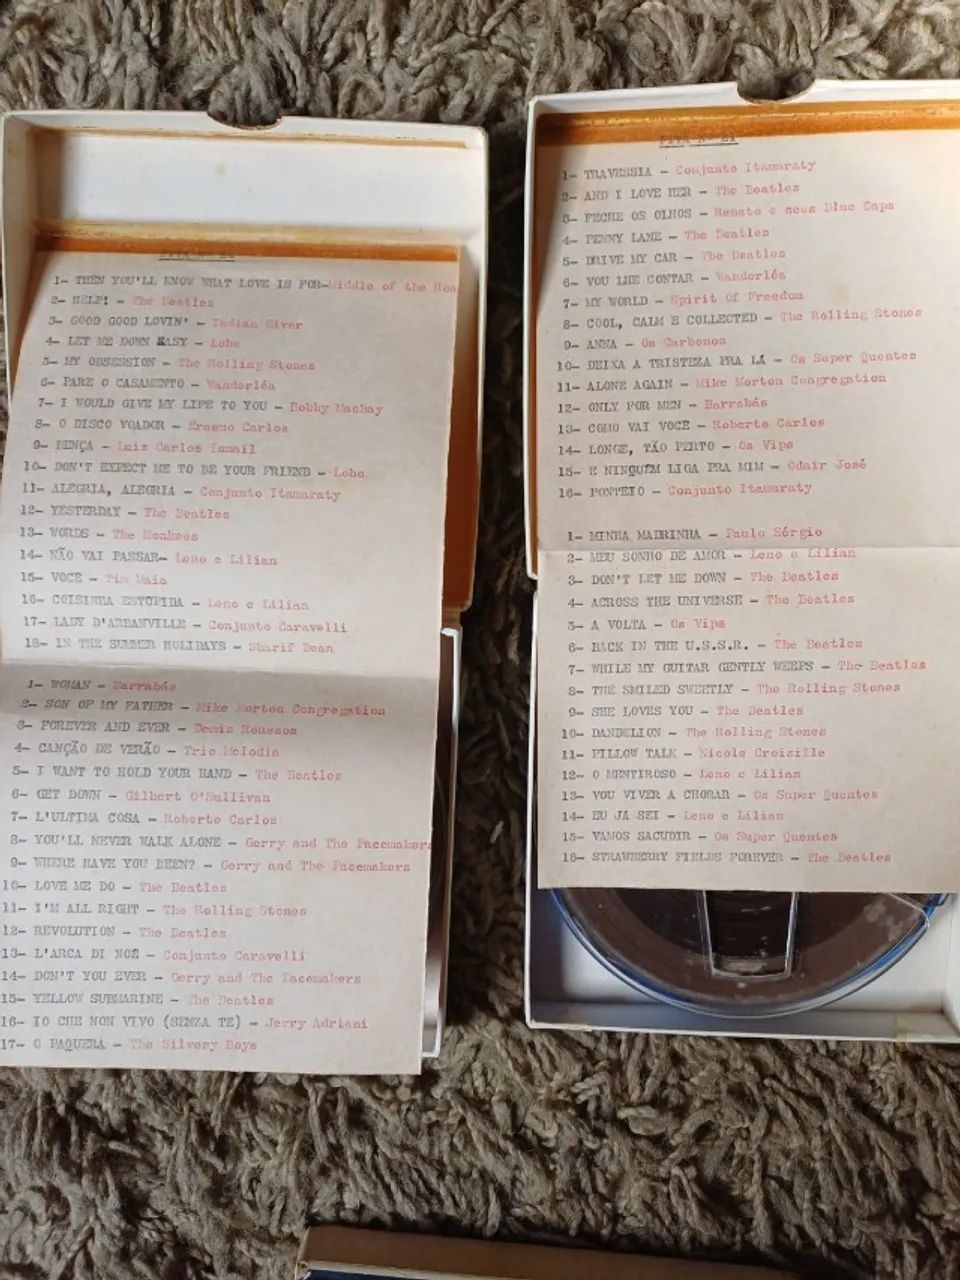 1- THEN YOU'LL KNOW WHAT LOVE IS FOR-Middle of the
2- HELP! - The Beatles
3- GOOD GOOD LOVIN' - Indian Giver
4- LET ME DOWN EASY - Lobo
5- MY OBSESSION - The Rolling Stones
6- PARE O CASAMENTO - Wanderléa
7- I WOULD GIVE MY LIFE TO YOU - Bobby Mackay
8- O DISCO VOADOR - Erasmo Carlos
9- BENÇA - Luis Carlos Ismail
10- DON'T EXPECT ME TO BE YOUR FRIEND - Lobo
11- ALEGRIA, ALEGRIA - Conjunto Itamaraty
12- YESTERDAY - The Beatles
13- WORDS - The Monkees
14- NÃO VAI PASSAR- Leno e Lilian
15- VOCE - Tim Maia
16- COISINHA ESTUPIDA - Leno e Lilian
17- LADY D'ARBANVILLE - Conjunto Caravelli
18- IN THE SUMMER HOLIDAYS - Sharif Dean
1- WOMAN - Barrabás
2- SON OF MY FATHER - Mike Morton Congregation
3- FOREVER AND EVER - Demis Roussos
4- CANÇÃO DE VERÃO - Trio Melodia
5- I WANT TO HOLD YOUR HAND - The Beatles
6- GET DOWN - Gilbert O'Sullivan
7- L'ULTIMA COSA - Roberto Carlos
8- YOU'LL NEVER WALK ALONE - Gerry and The Pacemakers
9- WHERE HAVE YOU BEEN? - Gerry and The Pacemakers
10- LOVE ME DO - The Beatles
11- I'M ALL RIGHT - The Rolling Stones
12- REVOLUTION - The Beatles
13- L'ARCA DI NOÉ - Conjunto Caravelli
14- DON'T YOU EVER - Gerry and The Pacemakers
15- YELLOW SUBMARINE - The Beatles
16- IO CHE NON VIVO (SENZA TE) - Jerry Adriani
17- O PAQUERA - The Silvery Boys
FITA Nº 21
1- TRAVESSIA - Conjunto Itamaraty
2- AND I LOVE HER - The Beatles
3- FECHE OS OLHOS - Renato e seus Blue Caps
4- PENNY LANE - The Beatles
5- DRIVE MY CAR - The Beatles
6- VOU LHE CONTAR - Wanderléa
7- MY WORLD - Spirit Of Freedom
8- COOL, CALM E COLLECTED - The Rolling Stones
9- ANNA - Os Carbonos
10- DEIXA A TRISTEZA PRA LÁ - Os Super Quentes
11- ALONE AGAIN - Mike Morton Congregation
12- ONLY FOR MEN - Barrabás
13- COMO VAI VOCE - Roberto Carlos
14- LONGE, TÃO PERTO - Os Vips
15- E NINQUÉM LIGA PRA MIM - Odair José
16- PONTEIO - Conjunto Itamaraty
1- MINHA MADRINHA - Paulo Sérgio
2- MEU SONHO DE AMOR - Leno e Lilian
3- DON'T LET ME DOWN - The Beatles
4- ACROSS THE UNIVERSE - The Beatles
5- A VOLTA - Os Vips
6- BACK IN THE U.S.S.R. - The Beatles
7- WHILE MY GUITAR GENTLY WEEPS - The Beatles
8- THE SMILED SWEETLY - The Rolling Stones
9- SHE LOVES YOU - The Beatles
10- DANDELION - The Rolling Stones
11- PILLOW TALK - Nicole Croisille
12- O MENTIROSO - Leno e Lilian
13- VOU VIVER A CHORAR - Os Super Quentes
14- EU JÁ SEI - Leno e Lilian
15- VAMOS SACUDIR - Os Super Quentes
16- STRAWBERRY FIELDS FOREVER - The Beatles